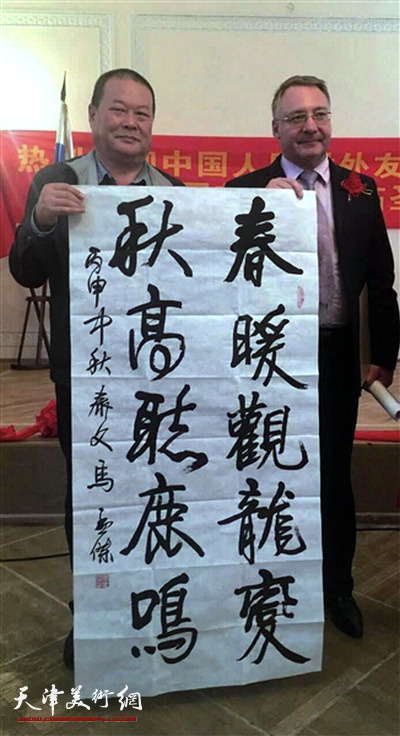 热 中国人 外友
圣
春暖觀龍變
秋高聽鹿鳴
丙申中秋 文 馬孟傑
天津美術網